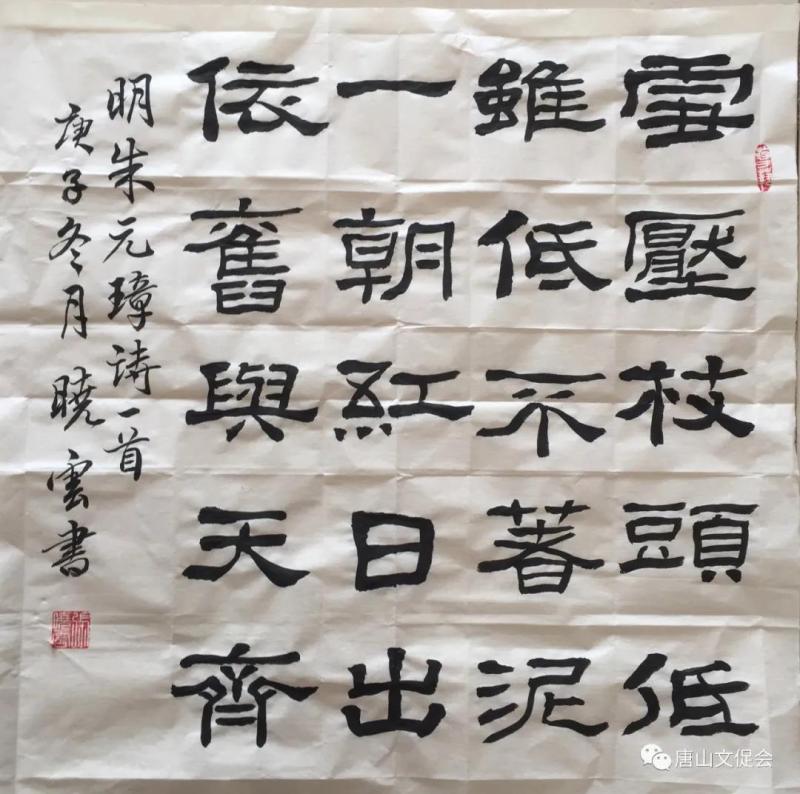 雪壓枝頭低
雖低不著泥
一朝紅日出
依舊與天齊
明朱元璋詩一首
庚子冬月曉雲書
唐山文促会